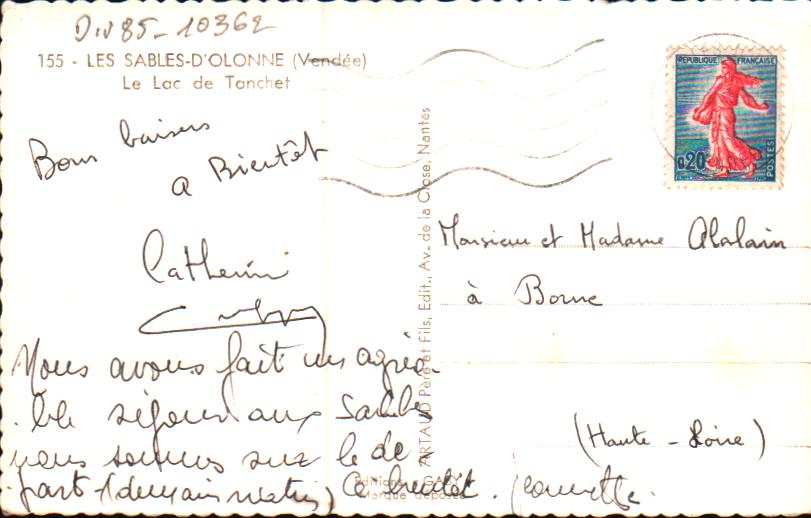 Div 85 - 10362
155 - LES SABLES-D'OLONNE (Vendée)
Le Lac de Tanchet
Bons baisers
a Bientôt
Catherine
Nous avons fait un agréa-
ble séjour aux Sables
nous sommes sur le dé-
part (demain matin) a bientôt.
ARTAUD Père et Fils, Edit., Av. de la Close, Nantes
Editions GABY
Marque déposée
REPUBLIQUE FRANÇAISE
0,20
POSTES
Monsieur et Madame
à Borne
(Haute - Loire)